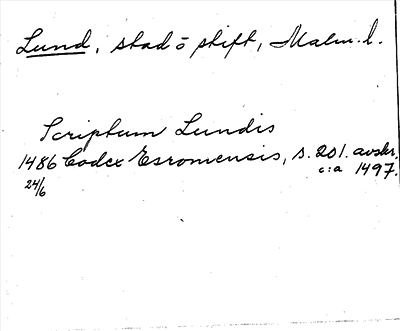 Lund, stad o stift, Malm. l.
Scriptum Lundis
1486 Codex Esromensis, s. 201. avskr.
24/6 c:a 1497.